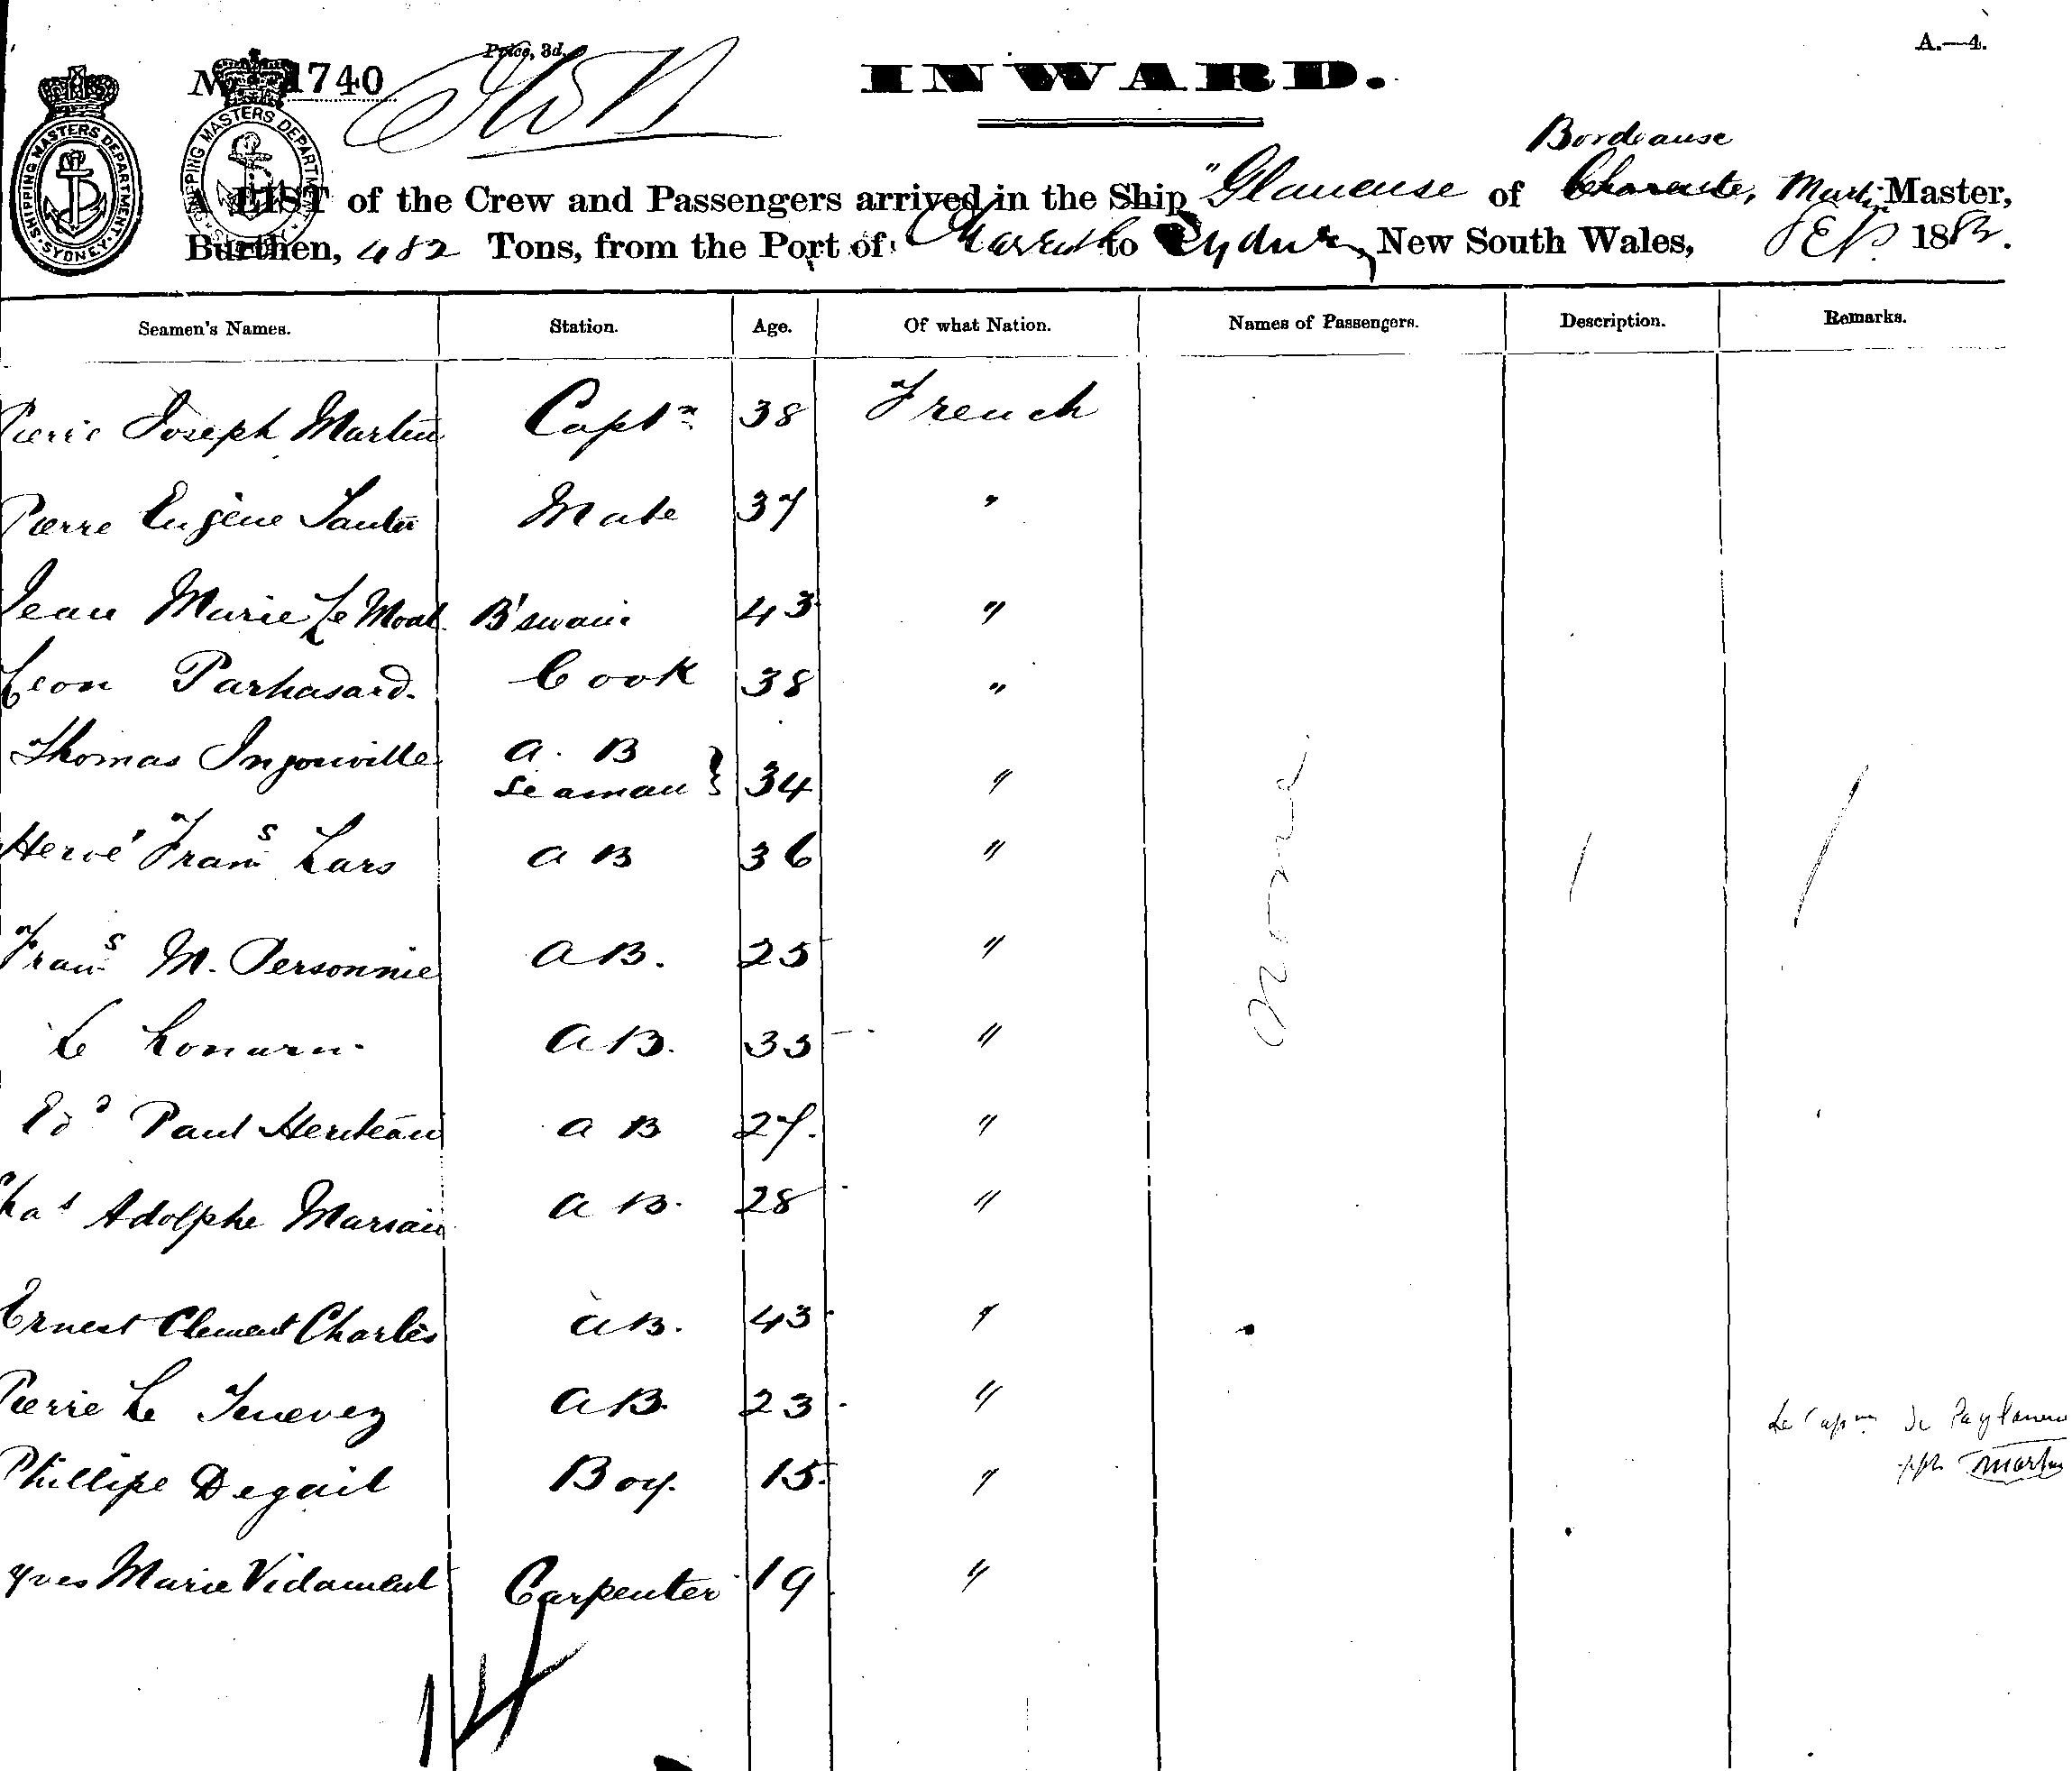 A.—4.
Price, 3d.
No. 1740
INWARD.
SHIPPING MASTERS DEPARTMENT. SYDNEY
SHIPPING MASTERS DEPARTMENT
Bordeause
A LIST of the Crew and Passengers arrived in the Ship "Glaneuse of Charente, Martin Master,
Burthen, 482 Tons, from the Port of Charente to Sydney, New South Wales, Sep 1882.
Seamen's Names. Station. Age. Of what Nation. Names of Passengers. Description. Remarks.
Pierre Joseph Martin Captn 38 French
Pierre Eugène 37 Mate "
Jean Marie Le Moal B'swain 43 "
Leon Parhasard. Cook 38 "
Thomas Ingouville A. B Seaman } 34 "
Hervé Frans Lars A B 36 "
Frans M. Personnie AB. 25 "
Le Lonarn. AB. 35 "
Edd Paul Heriteau A B 27. "
Chas Adolphe Marsain A B. 28 "
Ernest Clement Charles AB. 43 "
Pierre Le Tenevez AB. 23 "
Phillipe Degail Boy. 15 "
Yves Marie Vidament Carpenter 19 "
None
Le Capne de
Martin
14